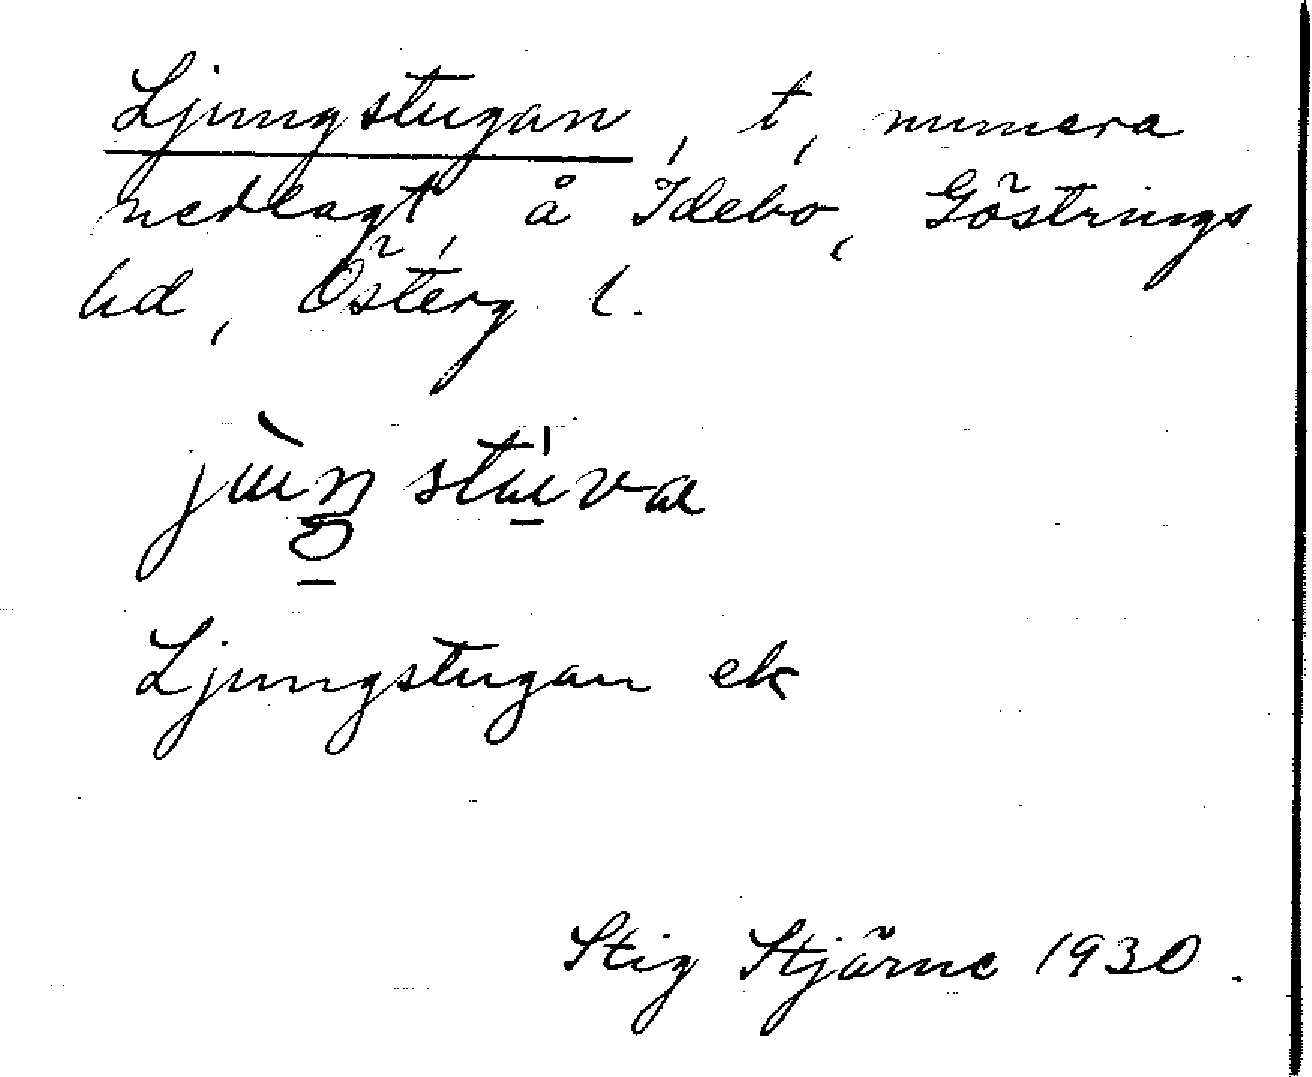 Ljungstugan, t, numera
nedlagt, å Idebo, Göstrings
hd, Österg l.
jùŋstu̱va
Ljungstugan ek
Stig Stjärne 1930.